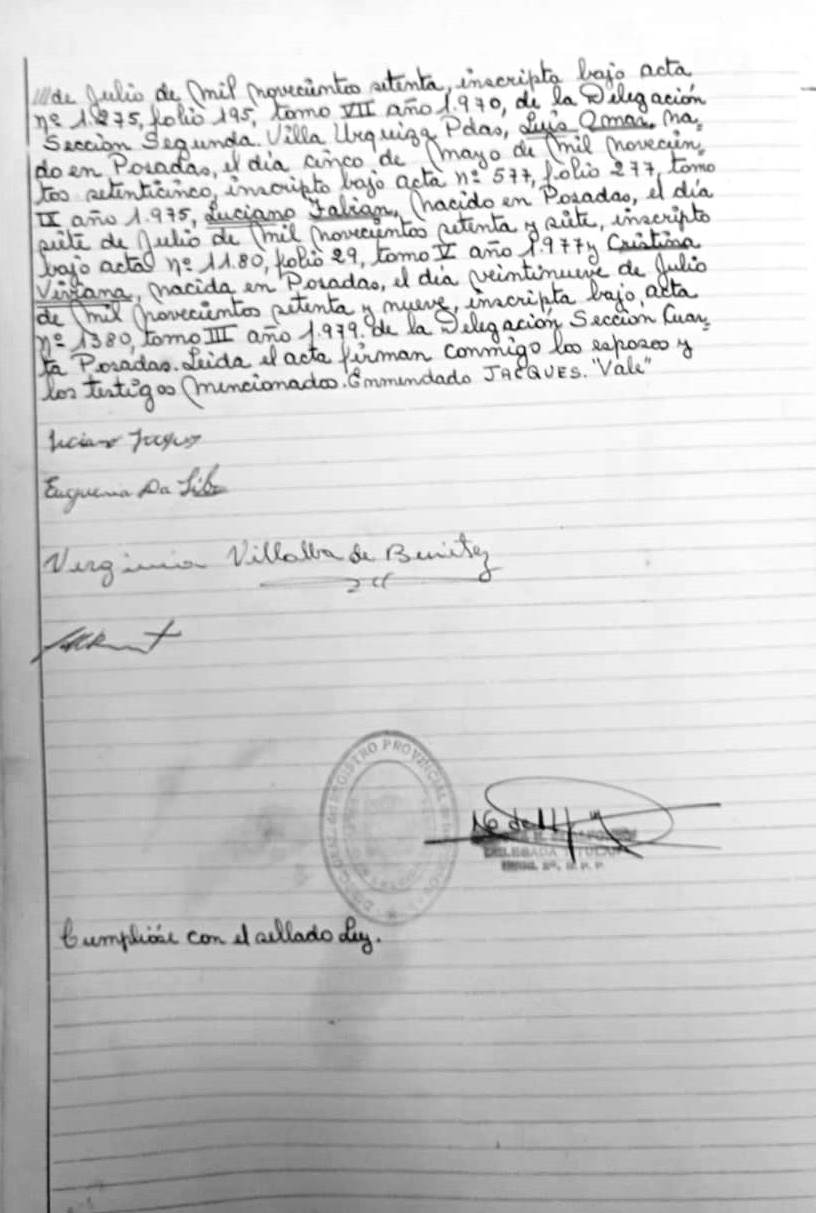 ///de Julio de mil novecientos setenta, inscripta bajo acta
nº 1.275, folio 195, tomo VII año 1.970, de la Delegación
Sección Segunda. Villa Urquiza Pdas, Luis Omar, na-
do en Posadas, el día cinco de mayo de mil novecien-
tos setenticinco, inscripto bajo acta nº 577, folio 277, tomo
IX año 1.975, Luciano Fabian, nacido en Posadas, el día
siete de Julio de mil novecientos setenta y siete, inscripto
bajo acta nº 11.80, folio 29, tomo V año 1.977 y Cristina
Viviana, nacida en Posadas, el día veintinueve de Julio
de mil novecientos setenta y nueve, inscripta bajo, acta
nº 1380, tomo III año 1.979. de la Delegación Sección Cuar-
ta Posadas. Leida el acta firman conmigo los esposos y
los testigos mencionados. Enmendado JACQUES. "Vale"
Luciano
Eugenia Da Silva
Verginia Villalba de Benitez
REGISTRO PROVINCIAL
DELEGADA TITULAR
Cumplióse con el sellado Ley.